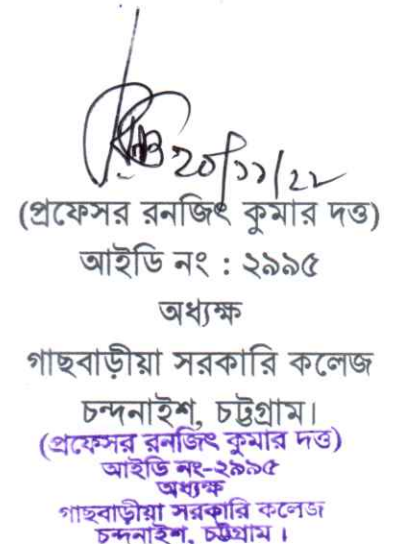 ২০/১১/২২
(প্রফেসর রনজিৎ কুমার দত্ত)
আইডি নং : ২৯৯৫
অধ্যক্ষ
গাছবাড়ীয়া সরকারি কলেজ
চন্দনাইশ, চট্টগ্রাম।
(প্রফেসর রনজিৎ কুমার দত্ত)
আইডি নং-২৯৯৫
অধ্যক্ষ
গাছবাড়ীয়া সরকারি কলেজ
চন্দনাইশ, চট্টগ্রাম।